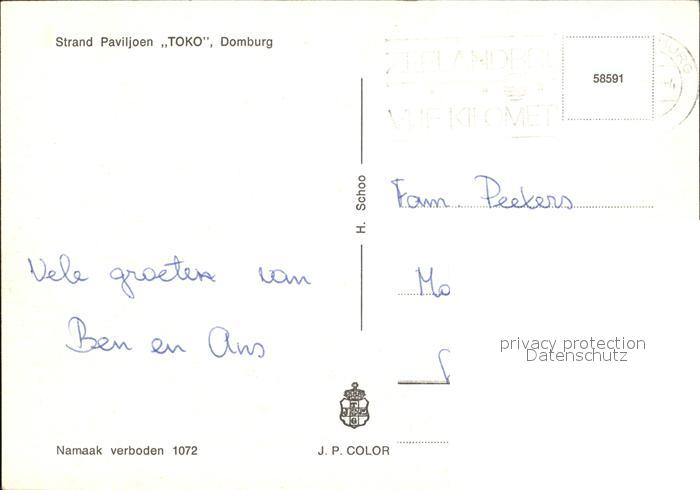 Strand Paviljoen „TOKO”, Domburg
ZEELANDBRUG
VIJF KILOMET
58591
H. Schoo
Fam. Peekers
Vele groeten van
Mo
Ben en Ans
privacy protection
Datenschutz
Namaak verboden 1072
J. P. COLOR